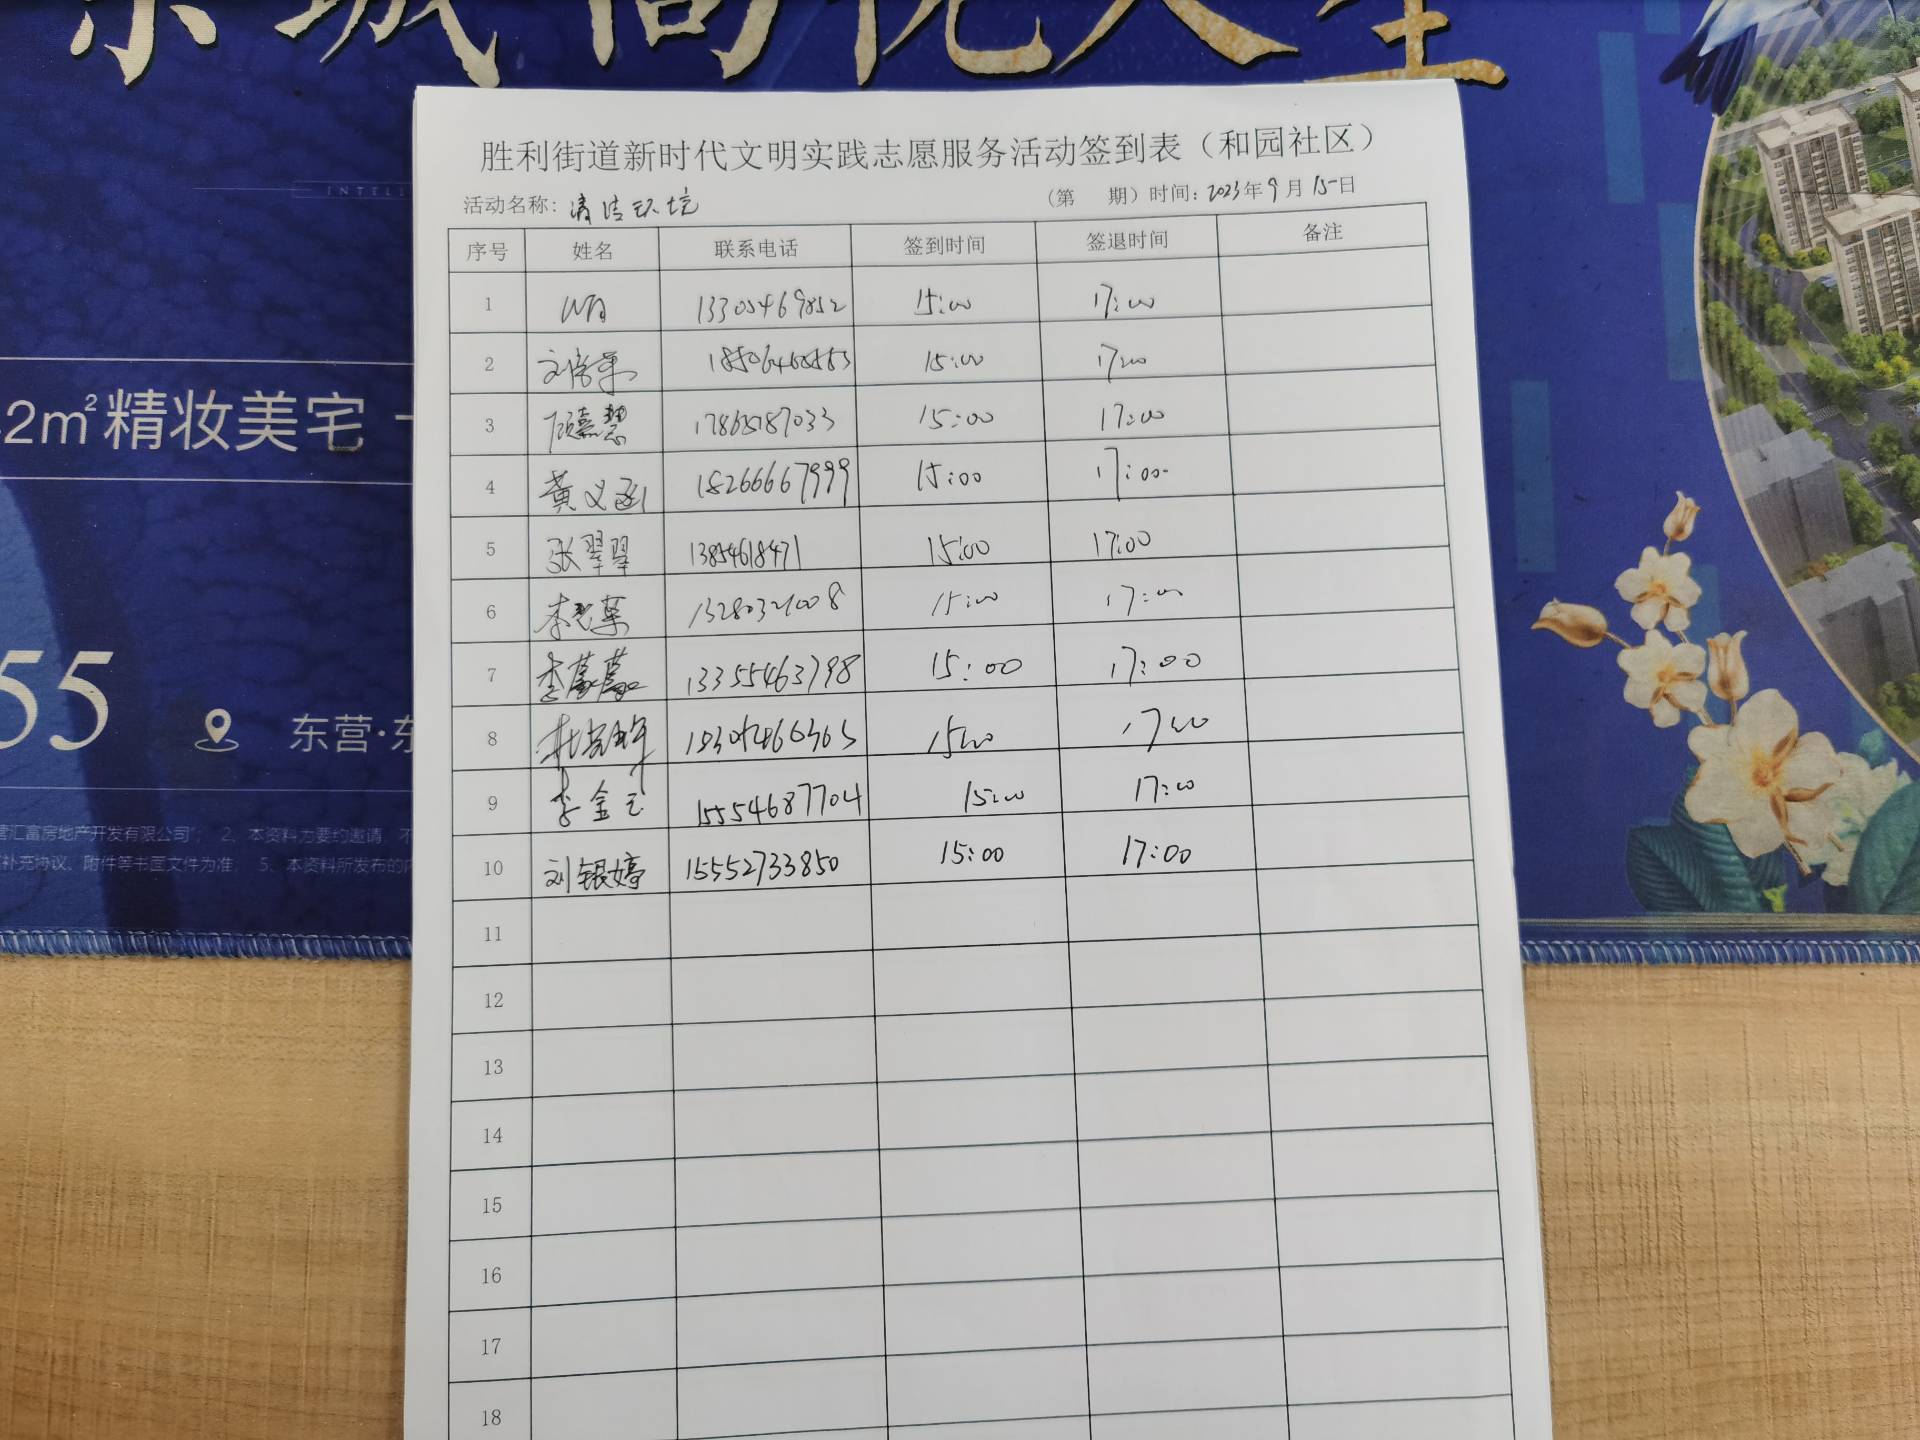 东城 尚悦人生
INTELL
胜利街道新时代文明实践志愿服务活动签到表（和园社区）
活动名称：清洁环境 （第 期）时间：2023年9月15日
序号 姓名 联系电话 签到时间 签退时间 备注
1 13305469852 15:00 17:00
2 15:00 17:00
3 顾嘉慧 17865187033 15:00 17:00
4 黄义函 18266667999 15:00 17:00
5 张翠翠 13854618471 15:00 17:00
6 13280321008 15:00 17:00
7 李蒙蒙 13355463798 15:00 17:00
8 15:00 17:00
9 李金玉 15554687704 15:00 17:00
10 刘银婷 15552733850 15:00 17:00
11
12
13
14
15
16
17
18
2㎡精妆美宅
55
东营·东
营汇富房地产开发有限公司”； 2、本资料为要约邀请，不
补充协议、附件等书面文件为准； 5、本资料所发布的内